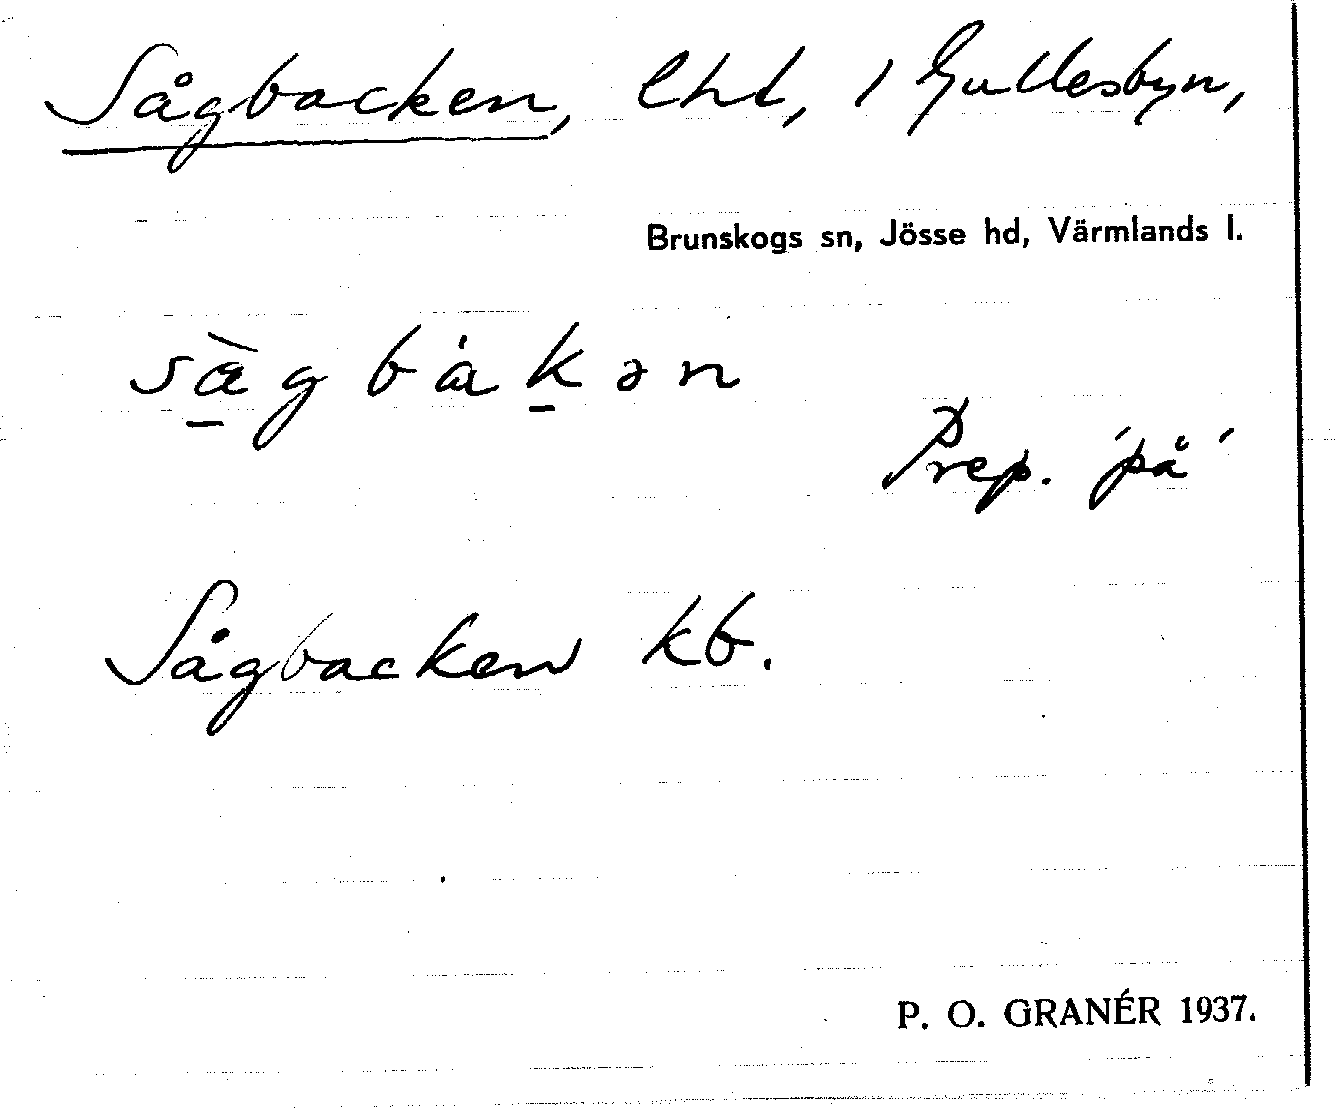 Sågbacken, lht, i Gullesbyn,
Brunskogs sn, Jösse hd, Värmlands l.
sæ̀gbákən
Prep. 'på'
Sågbacken kb.
P. O. GRANÉR 1937.